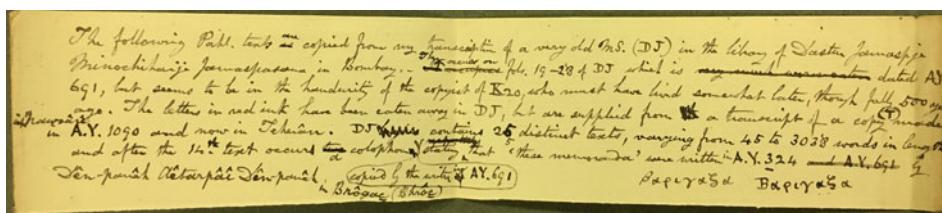 The following Pahl. texts are copied from my transcription of a very old MS. (DJ) in the library of Dastur Jamaspji
Minochiharji Jamaspasana in Bombay. – They occur on fols. 19-28 of DJ which is very much worm eaten dated AY
691, but seems to be in the handwriting of the copyist of K20, who must have lived somewhat later, though fully 500 years
ago. The letters in red ink have been eaten away in DJ, but are supplied from a transcript of a copy (T) made
in A.Y. 1090 and now in Teherân. DJ contains 25 distinct texts, varying from 45 to 3038 words in length
and after the 14th text occurs a colophon, stating that 'these memoranda' were written in A.Y. 324 and A.Y. 691 by
Dên-panâh Aêtarpâî Dên-panâh. copied by the writer of AY. 691
in Brôgac (Bhrôc) Βαριγαζα Βαριγαζα